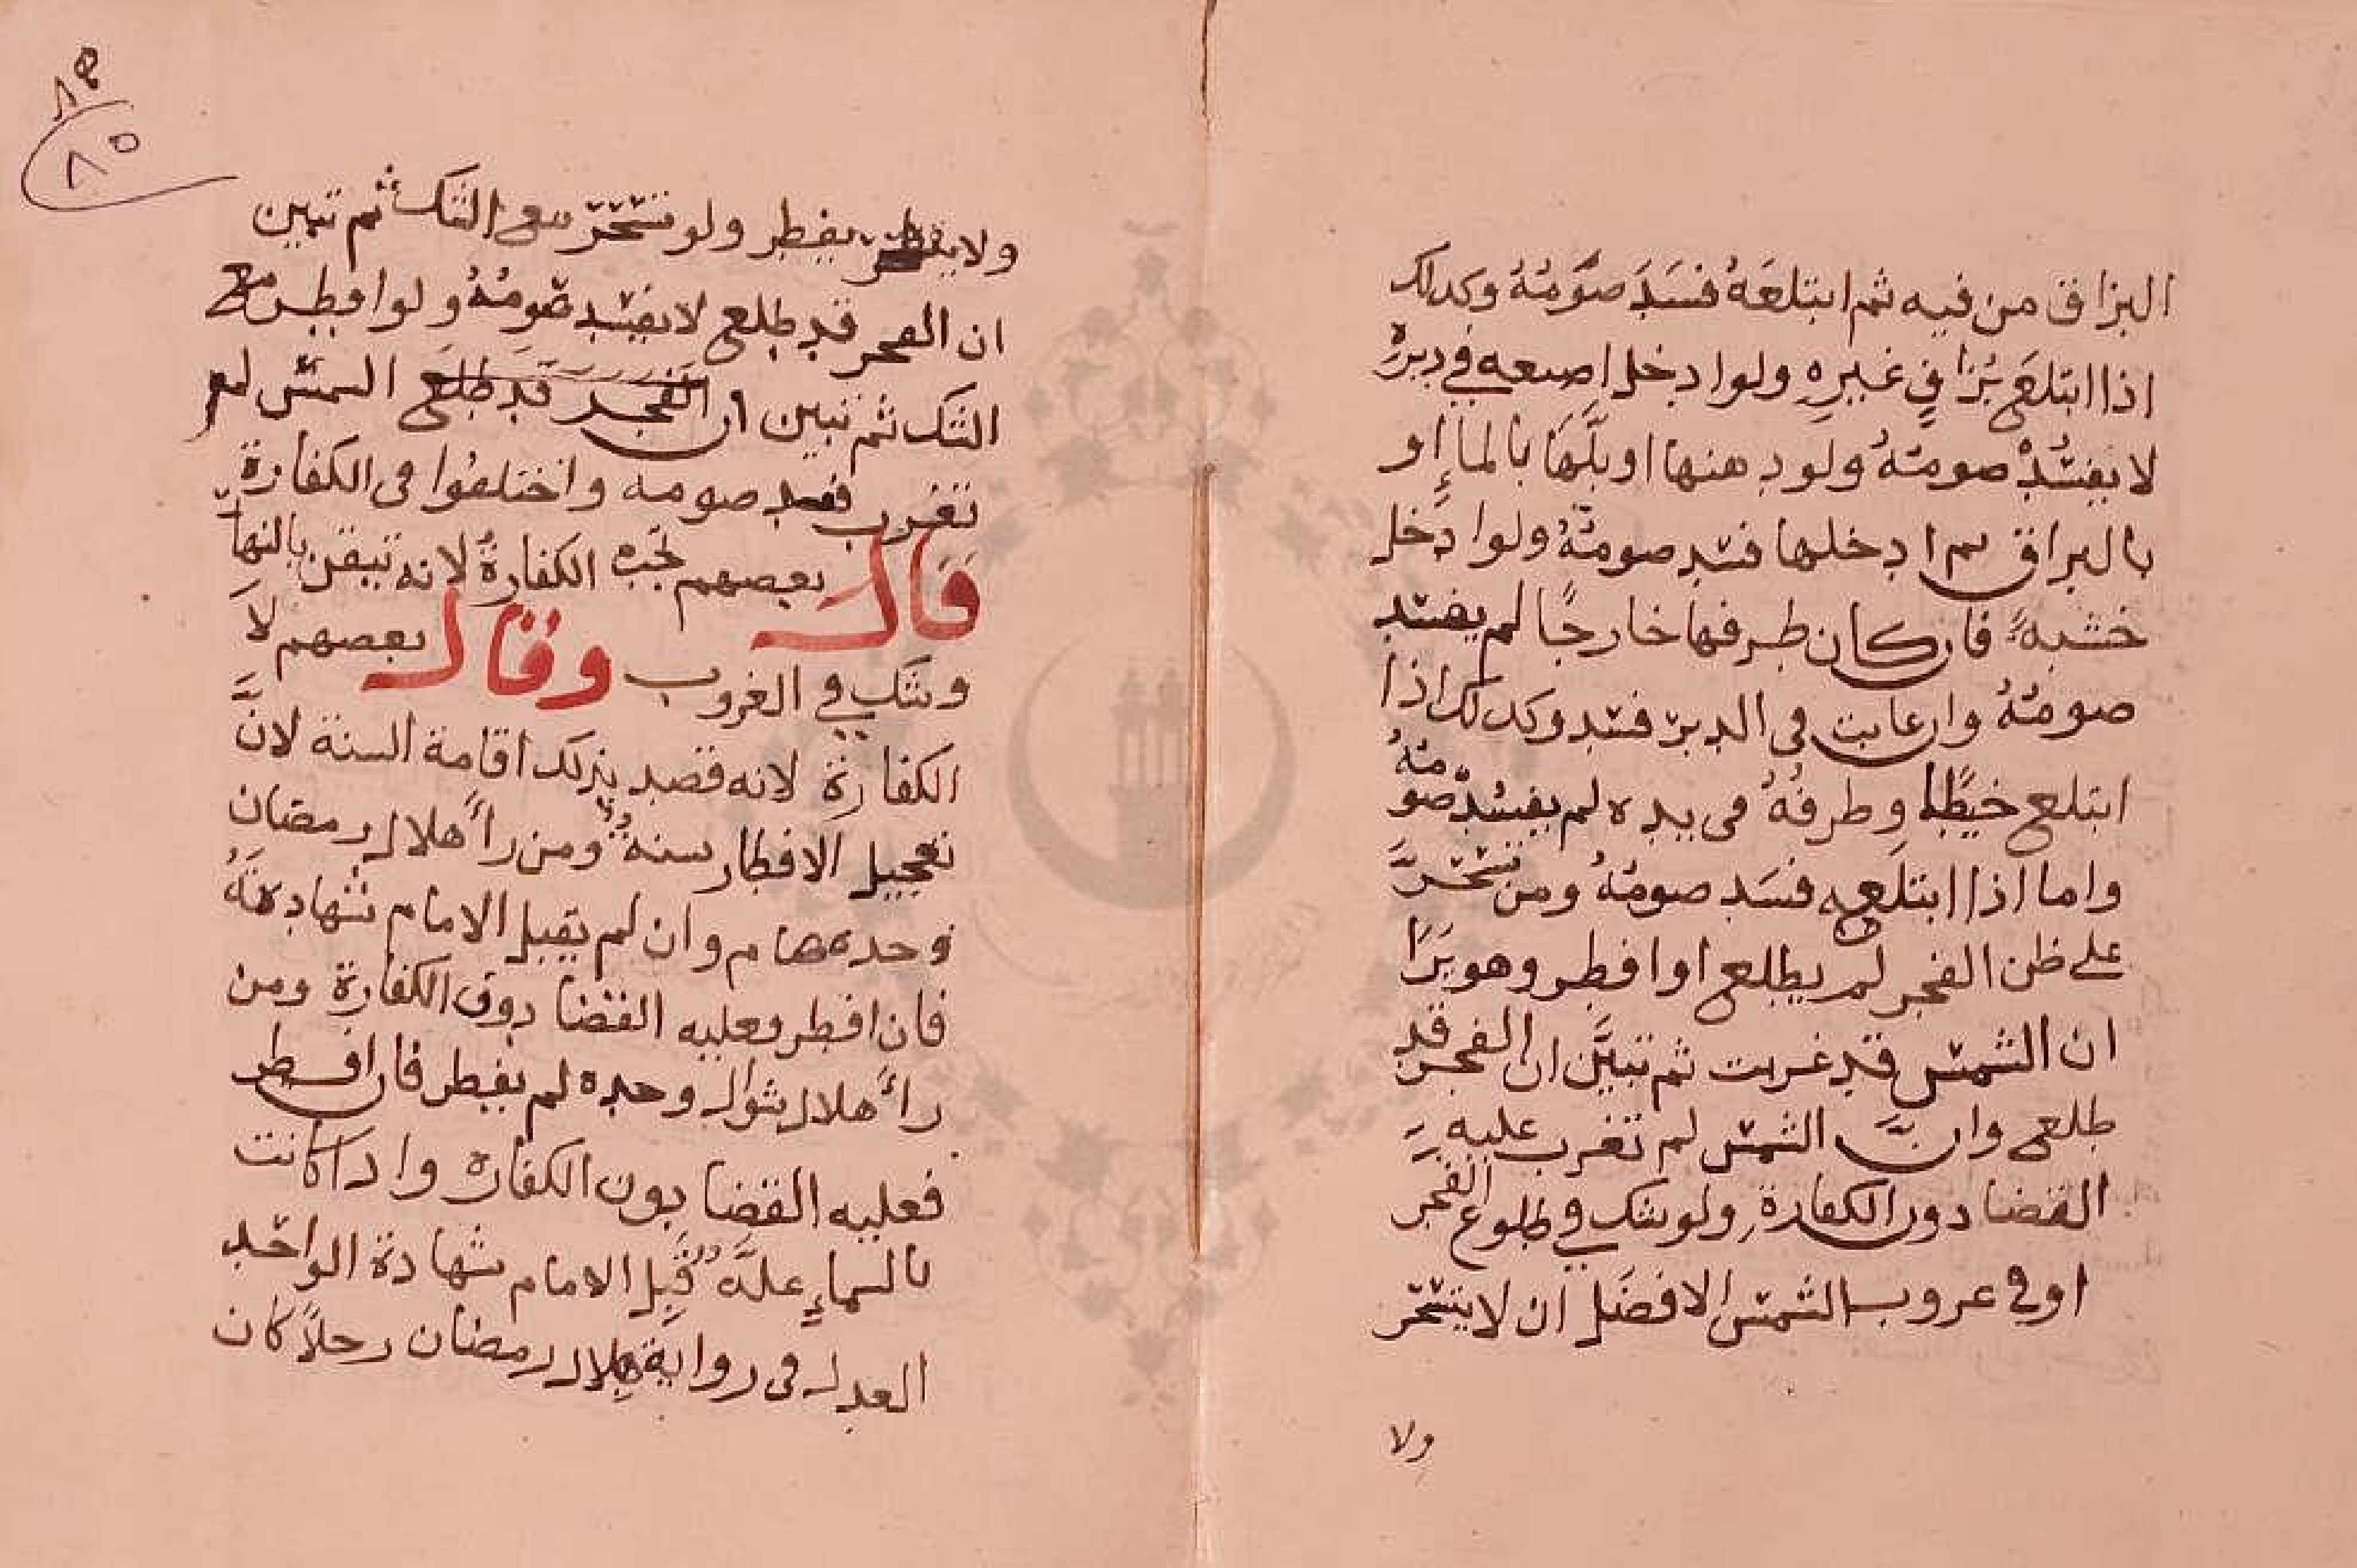 البزاق من فيه ثم ابتلعَهُ فسَدَ صومُهُ وكدلك
اذا ابتلعَ بُزَاقِ غيرِهِ ولو ادخل اصبعه في دبرهِ
لا يفسُدْ صومهُ ولو دهنها او بلَّهَا بالماءِ او
بالبزاق ثم ادخلها فسد صومهُ ولو ادخل
خشبةً فان كان طرفها خارجًا لم يفسد
صومهُ وان غابت في الدبر فسد وكدلك اذا
ابتلع خيطًا وطرفُهُ في يده لم يفسُدْ صومهُ
واما اذا ابتلعه فسَد صومهُ ومن تسَحَّرَ
على ظن الفجر لم يطلع او افطر وهو يرَا
ان الشمس قد غربت ثم تبيَّن ان الفجر قد
طلع وانَّ الشمس لم تغرب عليه
القضا دون الكفارة ولو شك في طلوع الفجر
او في غروب الشمس الافضَل ان لا يتسحر
ولا
٨٥
ولا يفطر ولو تسَحّرَ مع الشك ثم تبين
ان الفجر قد طلع لا يفسد صومُهُ ولو افطر مع
الشك ثم تبين ان الفجر قد طلع الشمس لم
تغرب فسد صومه واختلفوا في الكفارة
قال بعضهم تجب الكفارةُ لانه تيقن بالنهار
وشك في الغروب وقال بعضهم لا
الكفارة لانه قصد بذلك اقامة السنة لانَّ
تعجيل الافطار سنةٌ ومن راَ هلال رمضان
وحده صام وان لم يقبل الامام شهادتَهُ
فان افطر فعليه القضا دون الكفارة ومن
راَ هلال شوال وحده لم يفطر فان افطر
فعليه القضا دون الكفارة واذا كانت
بالسماءِ علةٌ قَبِل الامام شهادة الواحد
العدل في رواية هلال رمضان رجلاً كان